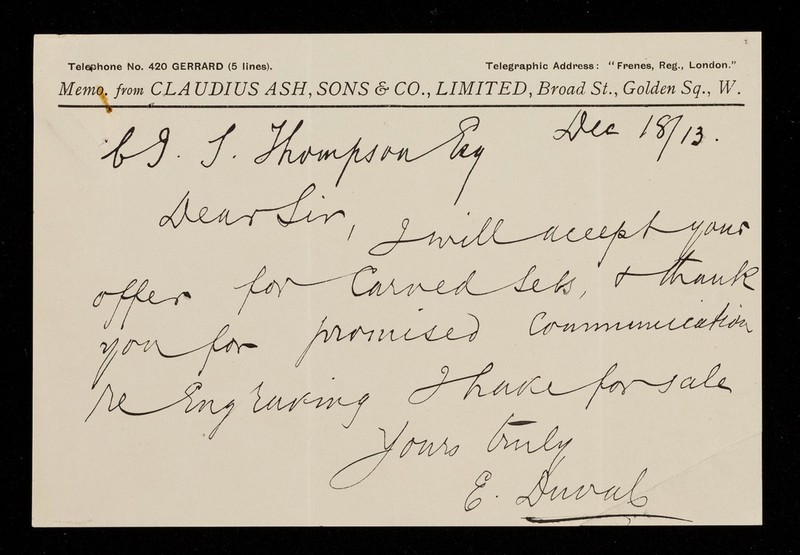 Telephone No. 420 GERRARD (5 lines). Telegraphic Address: "Frenes, Reg., London."
Memo. from CLAUDIUS ASH, SONS & CO., LIMITED, Broad St., Golden Sq., W.
Dec 18/13.
C J. S. Thompson Esq
Dear Sir,
I will accept your
offer for Carved Sets, & thank
you for promised Communication
re Engraving I have for sale
Yours truly
E. Duval